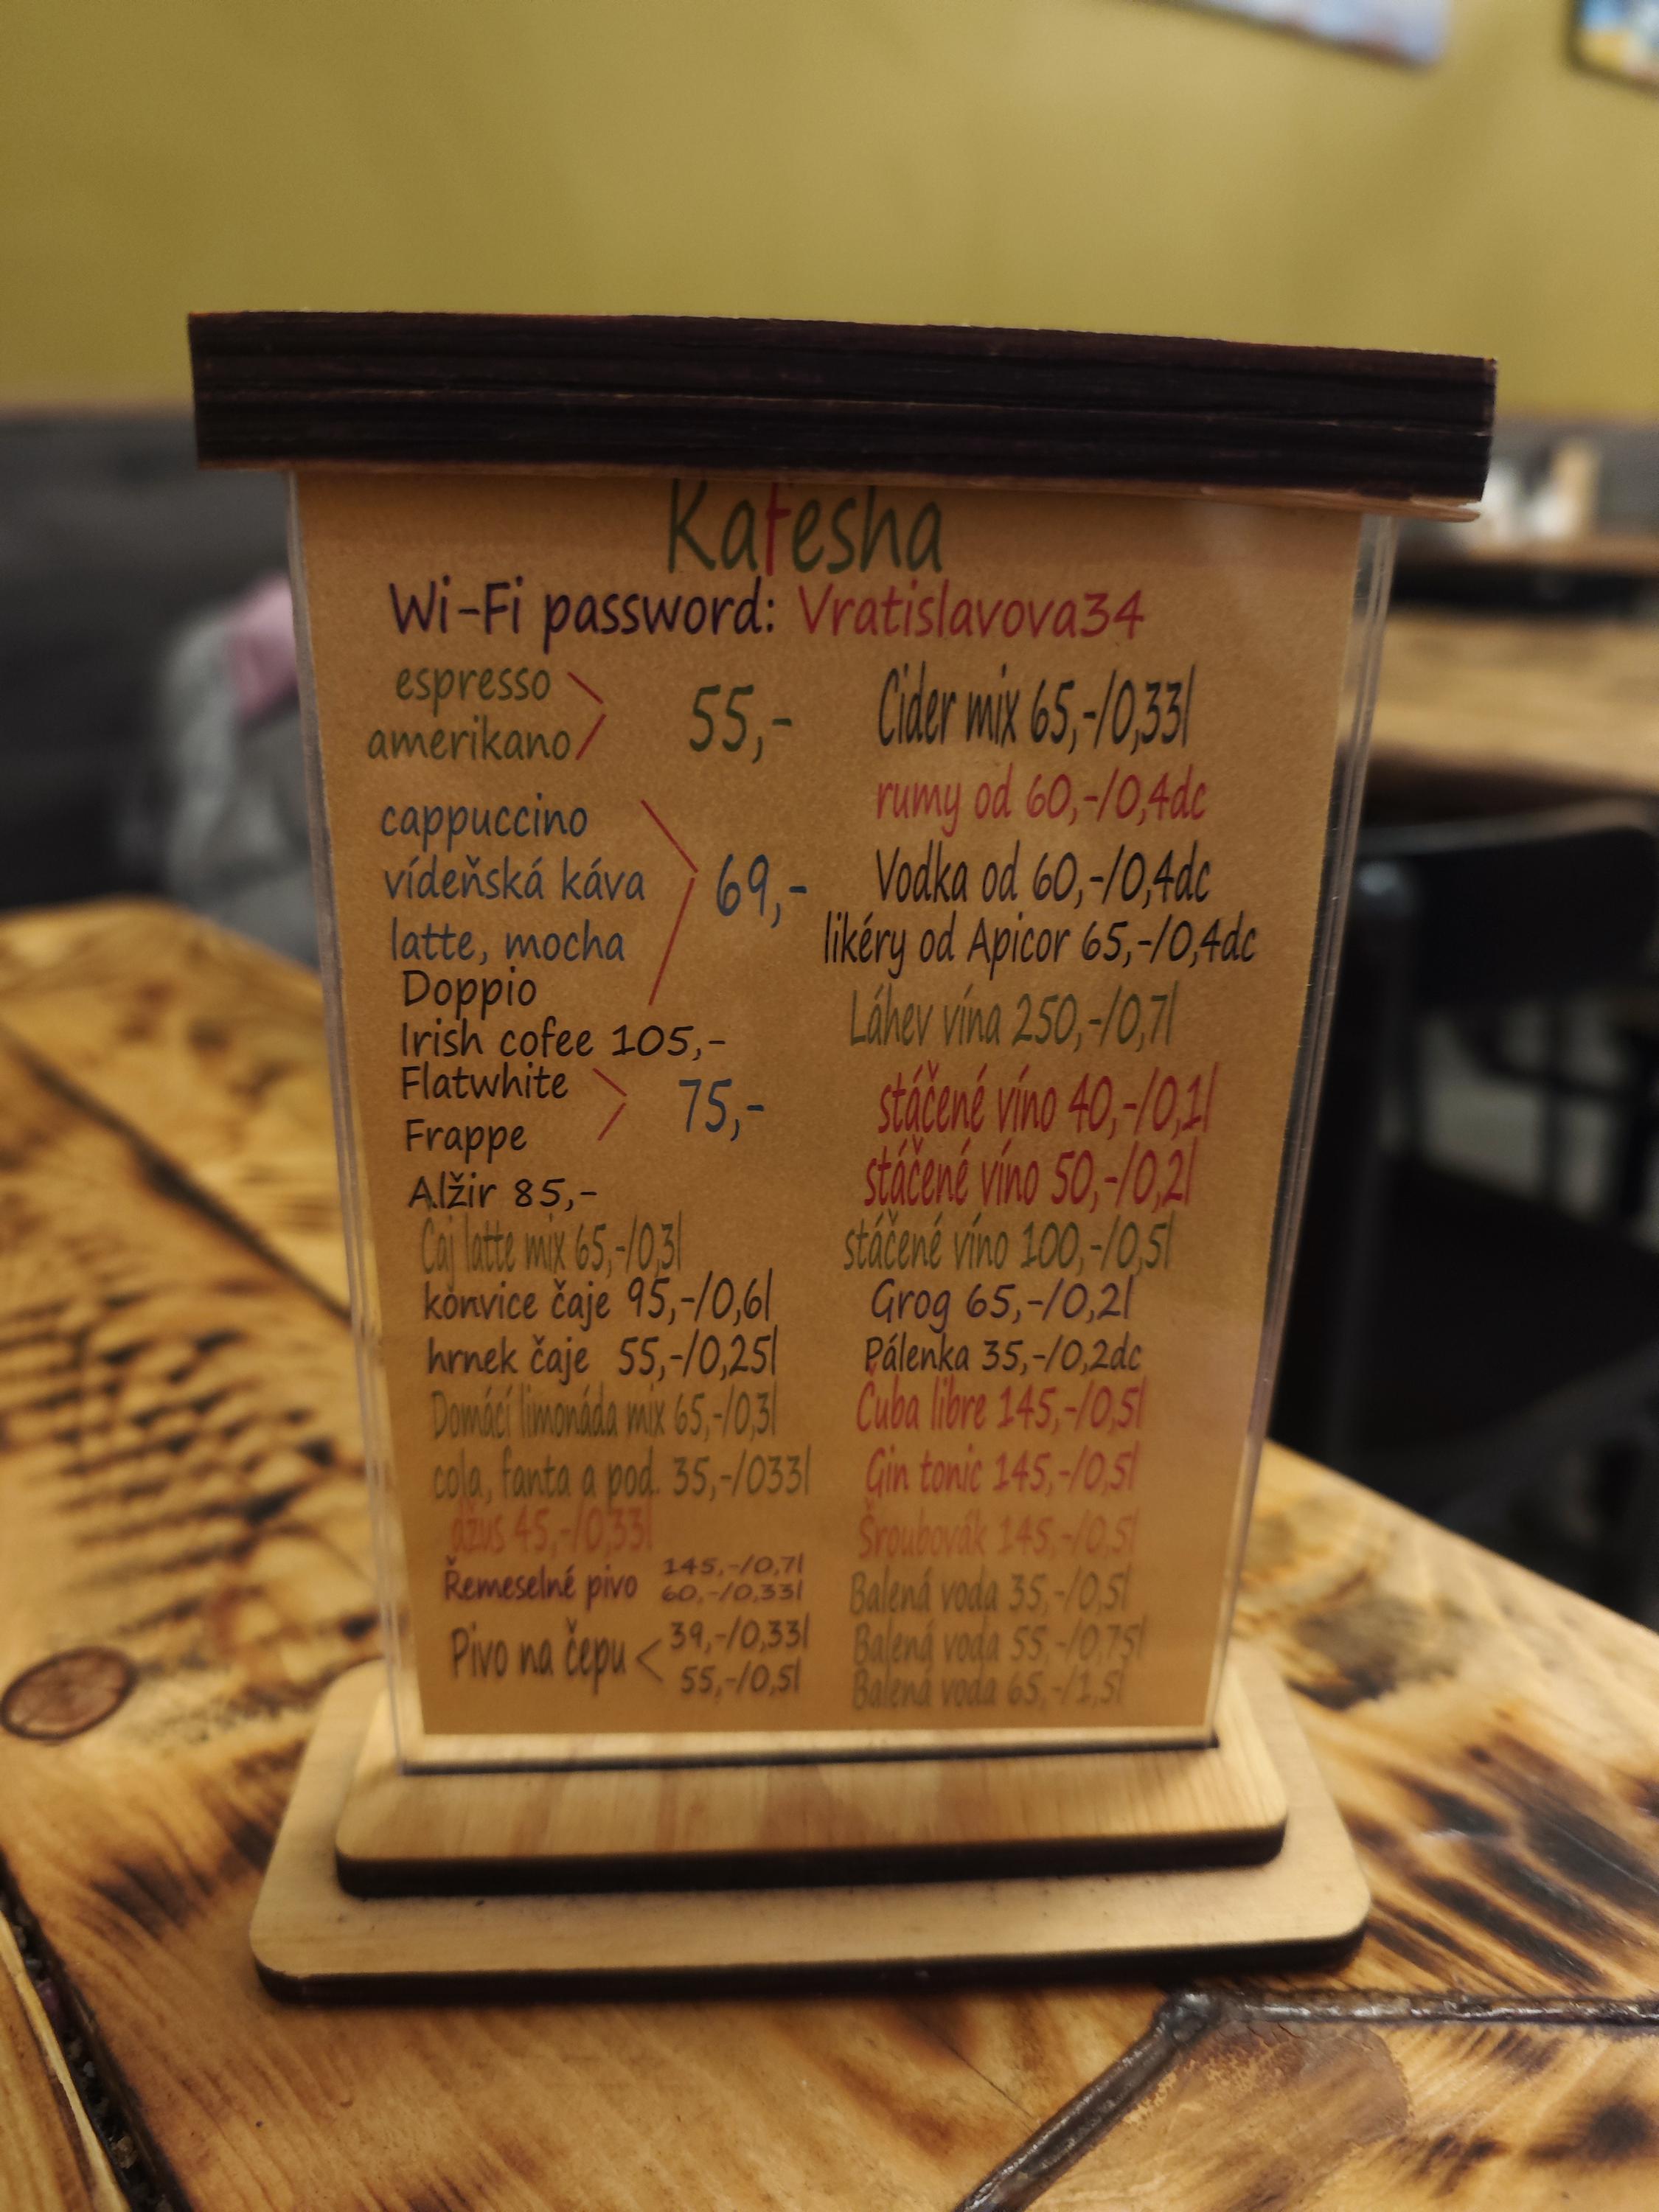 Katesha
Wi-Fi password: Vratislavova34
espresso
amerikano
55,-
cappuccino
vídeňská káva
latte, mocha
Doppio
69,-
Irish cofee 105,-
Flatwhite
Frappe
75,-
Alžir 85,-
Čaj latte mix 65,-/0,3l
konvice čaje 95,-/0,6l
hrnek čaje 55,-/0,25l
Domácí limonáda mix 65,-/0,3l
cola, fanta a pod. 35,-/033l
džus 45,-/0,33l
Řemeselné pivo
145,-/0,7l
60,-/0,33l
Pivo na čepu <
39,-/0,33l
55,-/0,5l
Cider mix 65,-/0,33l
rumy od 60,-/0,4dc
Vodka od 60,-/0,4dc
likéry od Apicor 65,-/0,4dc
Láhev vína 250,-/0,7l
stáčené víno 40,-/0,1l
stáčené víno 50,-/0,2l
stáčené víno 100,-/0,5l
Grog 65,-/0,2l
Pálenka 35,-/0,2dc
Cuba libre 145,-/0,5l
Gin tonic 145,-/0,5l
Šroubovák 145,-/0,5l
Balená voda 35,-/0,5l
Balená voda 55,-/0,75l
Balená voda 65,-/1,5l